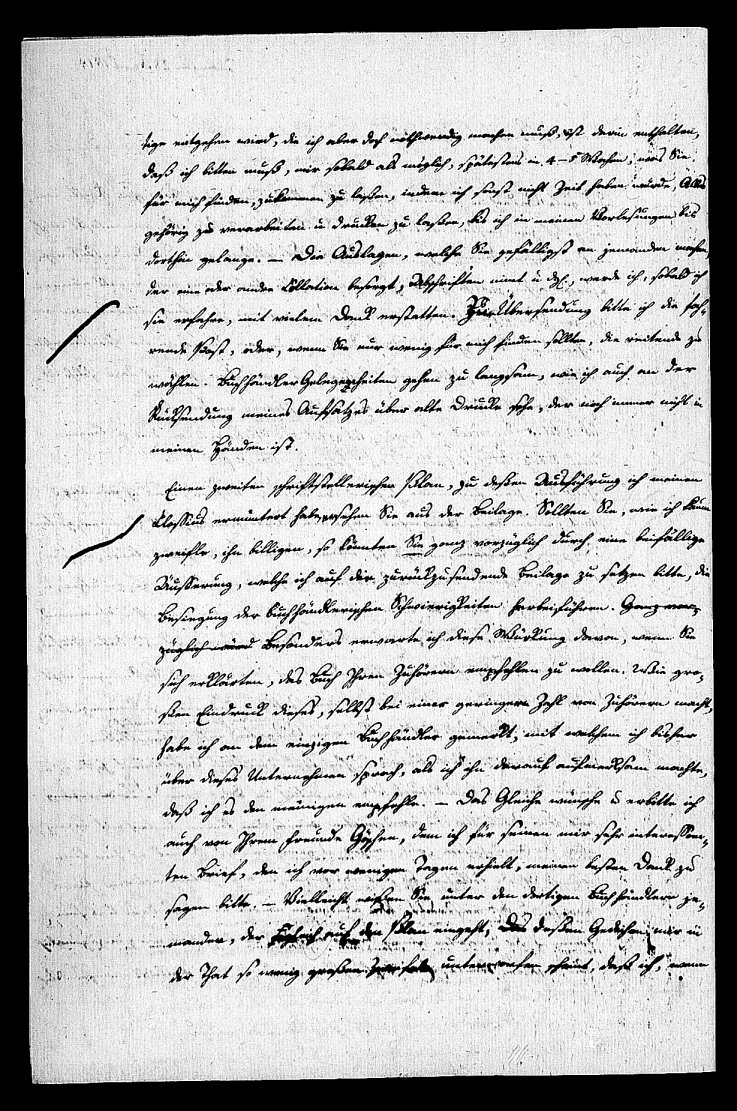 tige entgehen wird, die ich aber doch nothwendig machen muß, ist darin enthalten,
daß ich bitten muß, mir sobald als möglich, spätestens in 4–5 Wochen, was Sie
für mich finden, zukommen zu laßen, indem ich sonst nicht Zeit haben würde, Alles
gehörig zu verarbeiten u drucken zu laßen, bis ich in meinen Vorlesungen bis
dorthin gelange. – Die Auslagen, welche Sie gefälligst an jemanden machen,
der eine oder andre Collation besorgt, Abschriften nimt u dgl., werde ich, sobald ich
sie erfahre, mit vielem Dank erstatten. Zur Übersendung bitte ich die fah-
rende Post, oder, wenn Sie nur wenig für mich finden sollten, die reitende zu
wählen. Buchhändler Gelegenheiten gehen zu langsam, wie ich auch an der
Rücksendung meines Aufsatzes über alte Drucke sehe, der noch immer nicht in
meinen Händen ist.
Einen zweiten schriftstellerischen Plan, zu deßen Ausführung ich meinen
Clossius ermuntert habe, ersehen Sie aus der Beilage. Sollten Sie, wie ich kaum
zweifle, ihn billigen, so könnten Sie ganz vorzüglich durch eine beifällige
Äusserung, welche ich auf die zurückzusendende Beilage zu setzen bitte, die
Besiegung der buchhändlerischen Schwierigkeiten herbeiführen. Ganz vor-
züglich würd Besonders erwarte ich diese Würkung davon, wenn Sie
sich erklärten, das Buch Ihren Zuhörern empfehlen zu wollen. Wie gro-
ßen Eindruck dieses, selbst bei einer geringern Zahl von Zuhörern macht,
habe ich an dem einzigen Buchhändler gemerkt, mit welchem ich bisher
über dieses Unternehmen sprach, als ich ihn darauf aufmerksam machte,
daß ich es den meinigen empfehle. – Das Gleiche wünsche u erbitte ich
auch von Ihrem Freunde Göschen, dem ich für seinen mir sehr interessan-
ten Brief, den ich vor wenigen Tagen erhielt, meinen besten Dank zu
sagen bitte. – Vielleicht wißen Sie unter den dortigen Buchhändlern je-
manden, der auf den Plan eingeht, deßen Gedeihen mir in
der That so wenig großen Zweifeln unterworfen scheint, daß ich, wenn